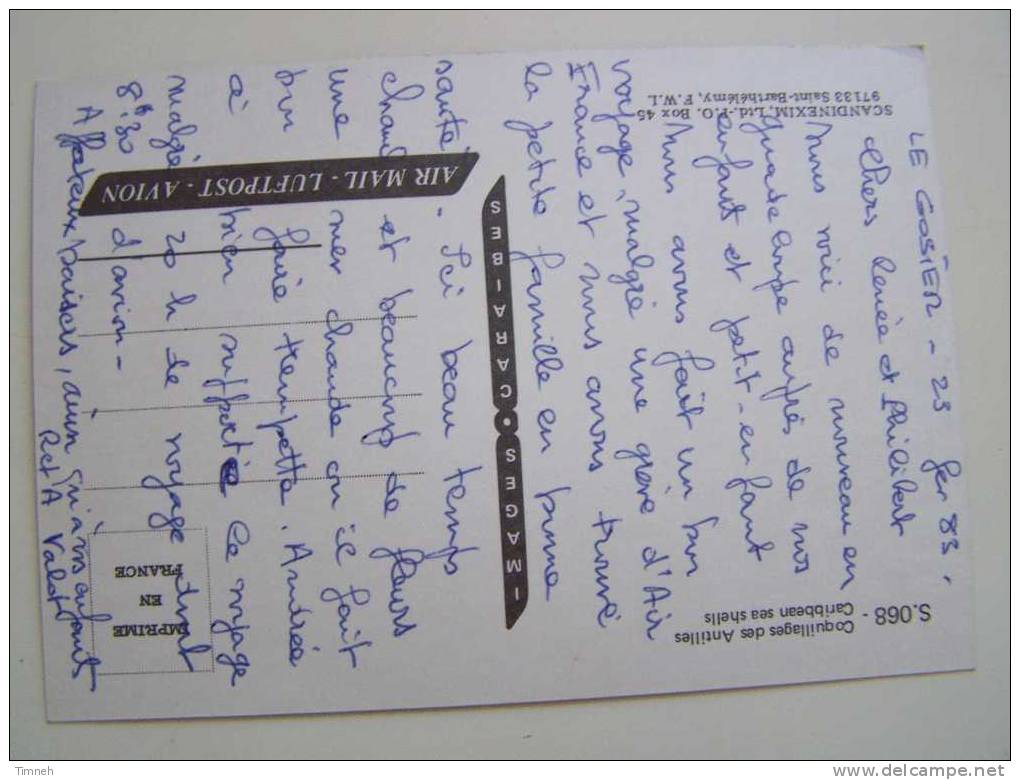 LE GOSIER - 23 fev 83.
Chers Renée et Philibert
Nous voici de nouveau en
Guadeloupe auprès de nos
enfants et petit-enfant
Nous avons fait un bon
voyage, malgré une grève d'Air
France et nous avons trouvé
la petite famille en bonne
santé. Ici beau temps
chaud et beaucoup de fleurs
une mer chaude où il fait
bon faire trempette. Andrée
à bien supporté le voyage
malgré 20 h de voyage dont
8h30 d'avion -
Affectueux baisers, ainsi qu'à vos enfants
R et A Valot
S.068 - Coquillages des Antilles
Caribbean sea shells
SCANDINEXIM, Ltd.-P.O. Box 45
97133 Saint-Barthélémy, F.W.I.
IMAGES CARAIBES
AIR MAIL - LUFTPOST - AVION
IMPRIME
EN
FRANCE
Timneh
www.delcampe.net